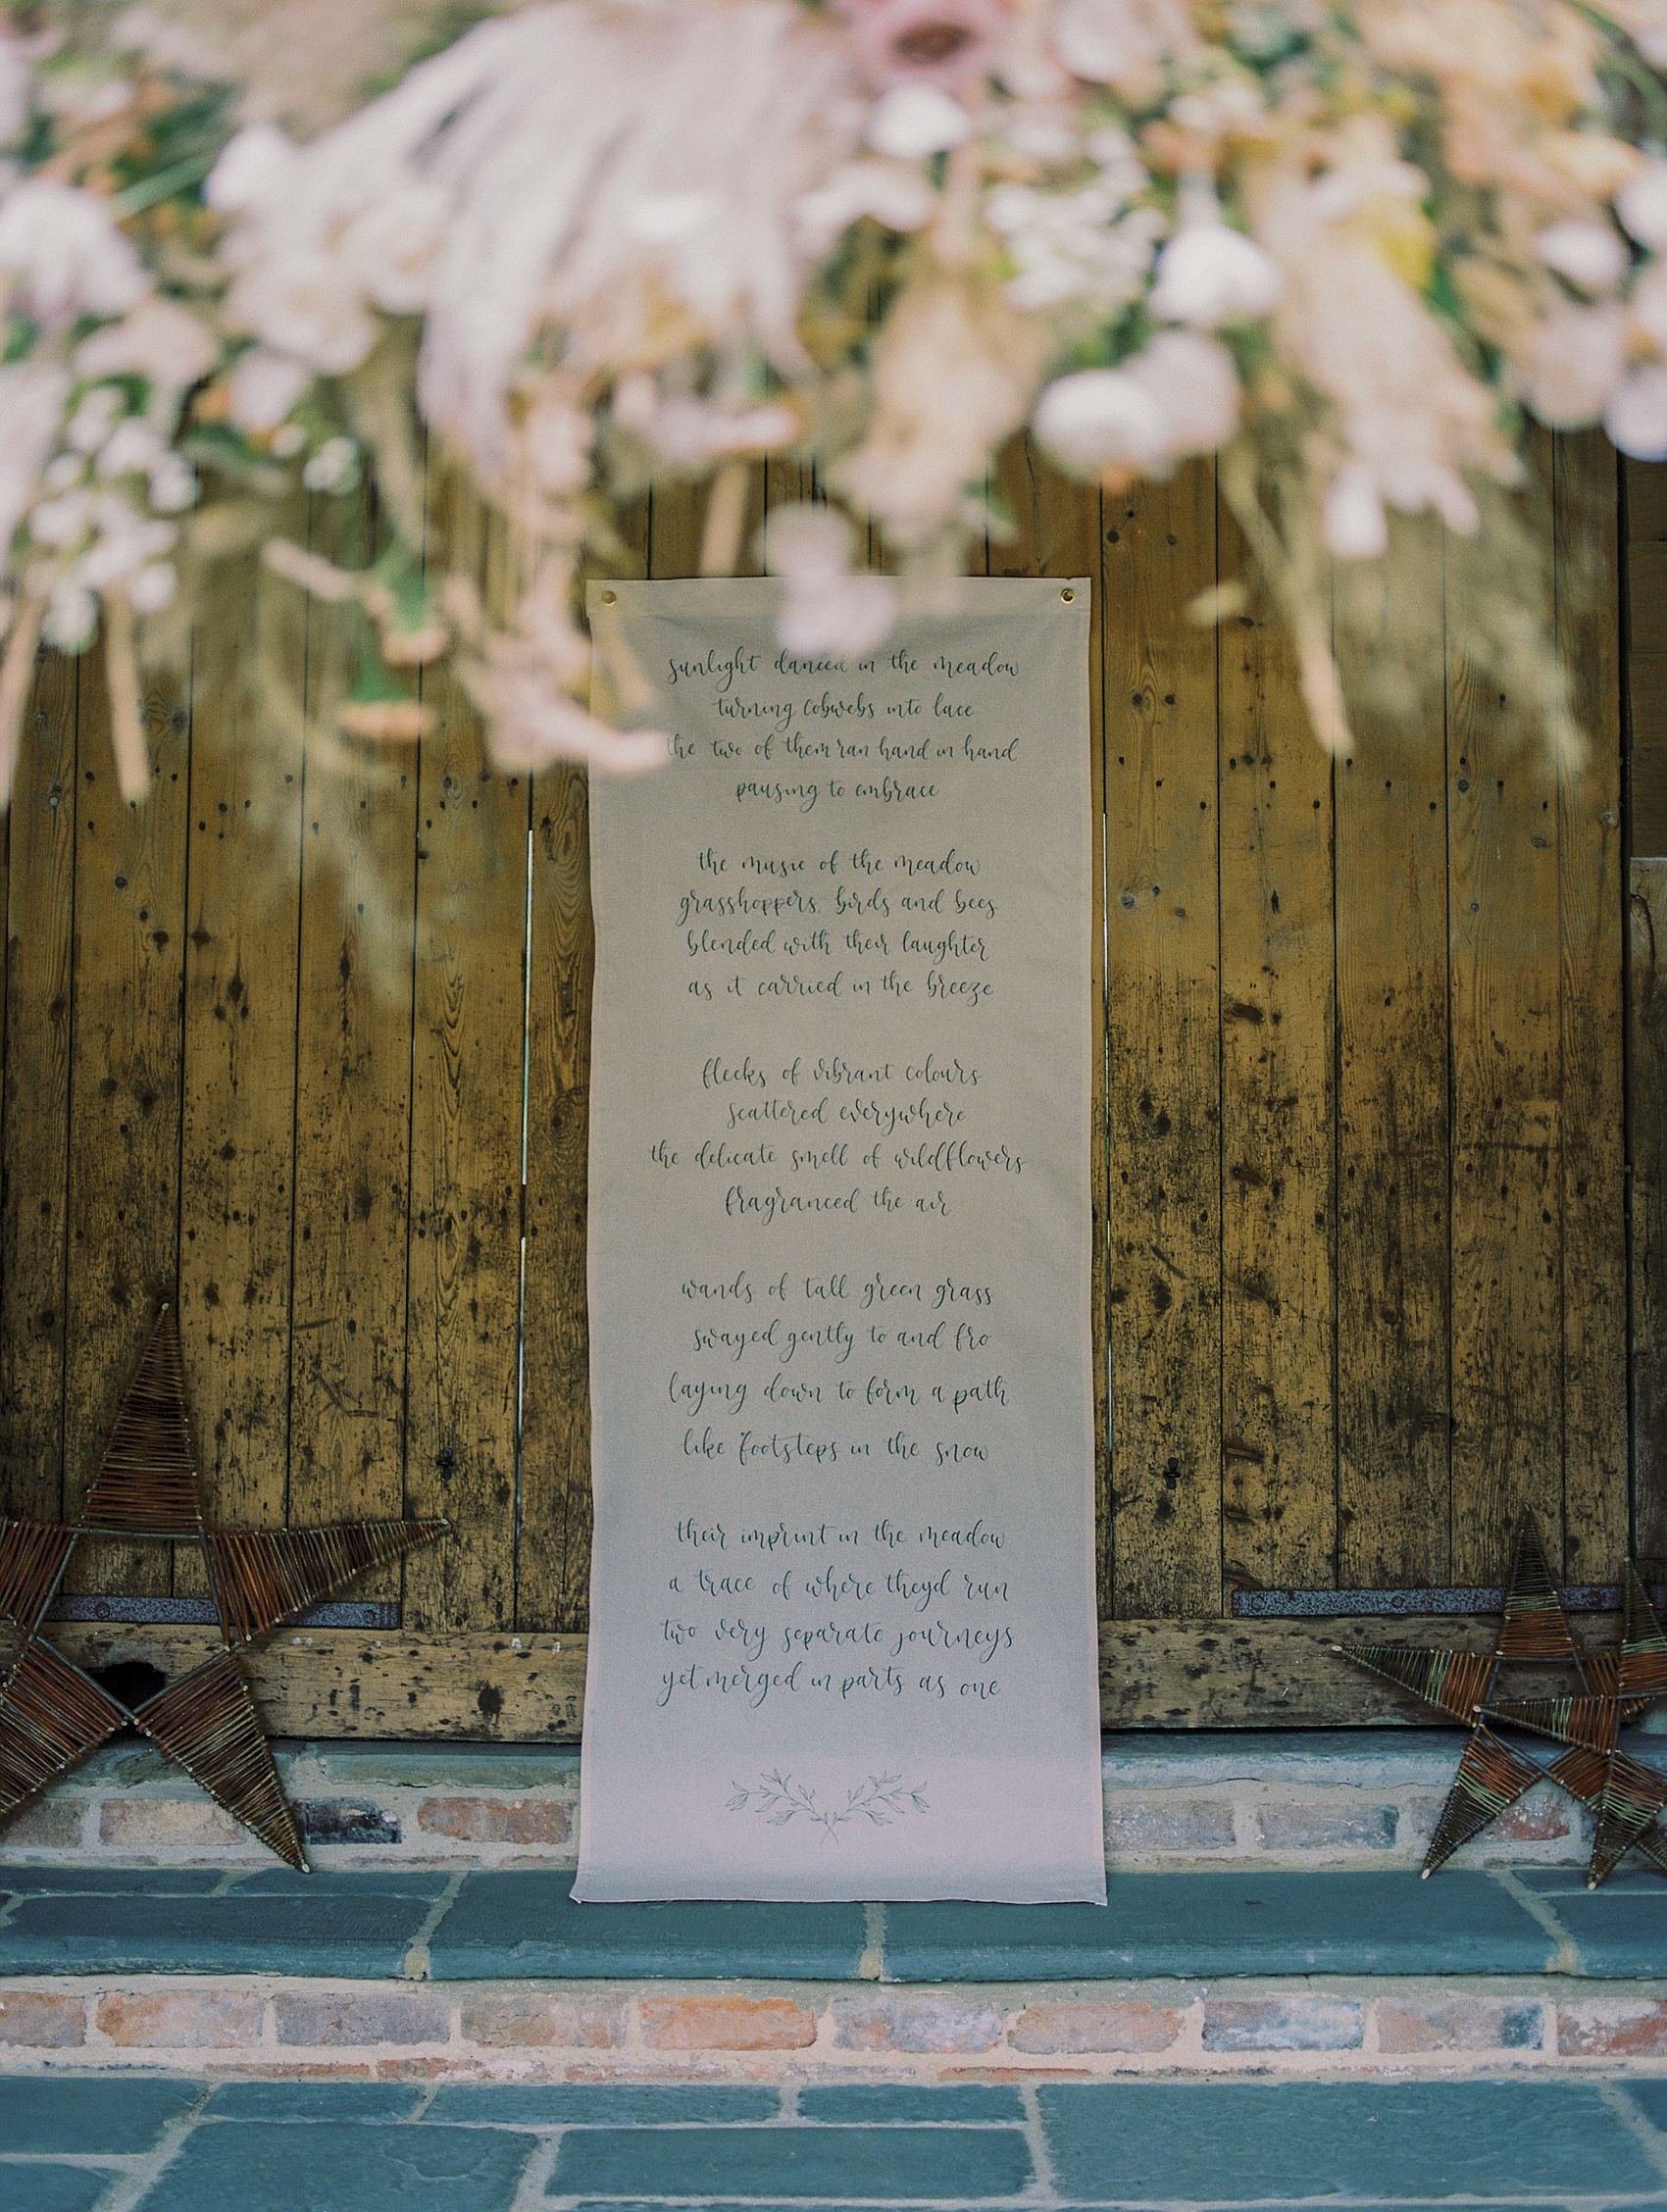 sunlight danced in the meadow
turning cobwebs into lace
the two of them ran hand in hand
pausing to embrace
the music of the meadow
grasshoppers, birds and bees
blended with their laughter
as it carried in the breeze
flecks of vibrant colours
scattered everywhere
the delicate smell of wildflowers
fragranced the air
wands of tall green grass
swayed gently to and fro
laying down to form a path
like footsteps in the snow
their imprint in the meadow
a trace of where they'd run
two very separate journeys
yet merged in parts as one